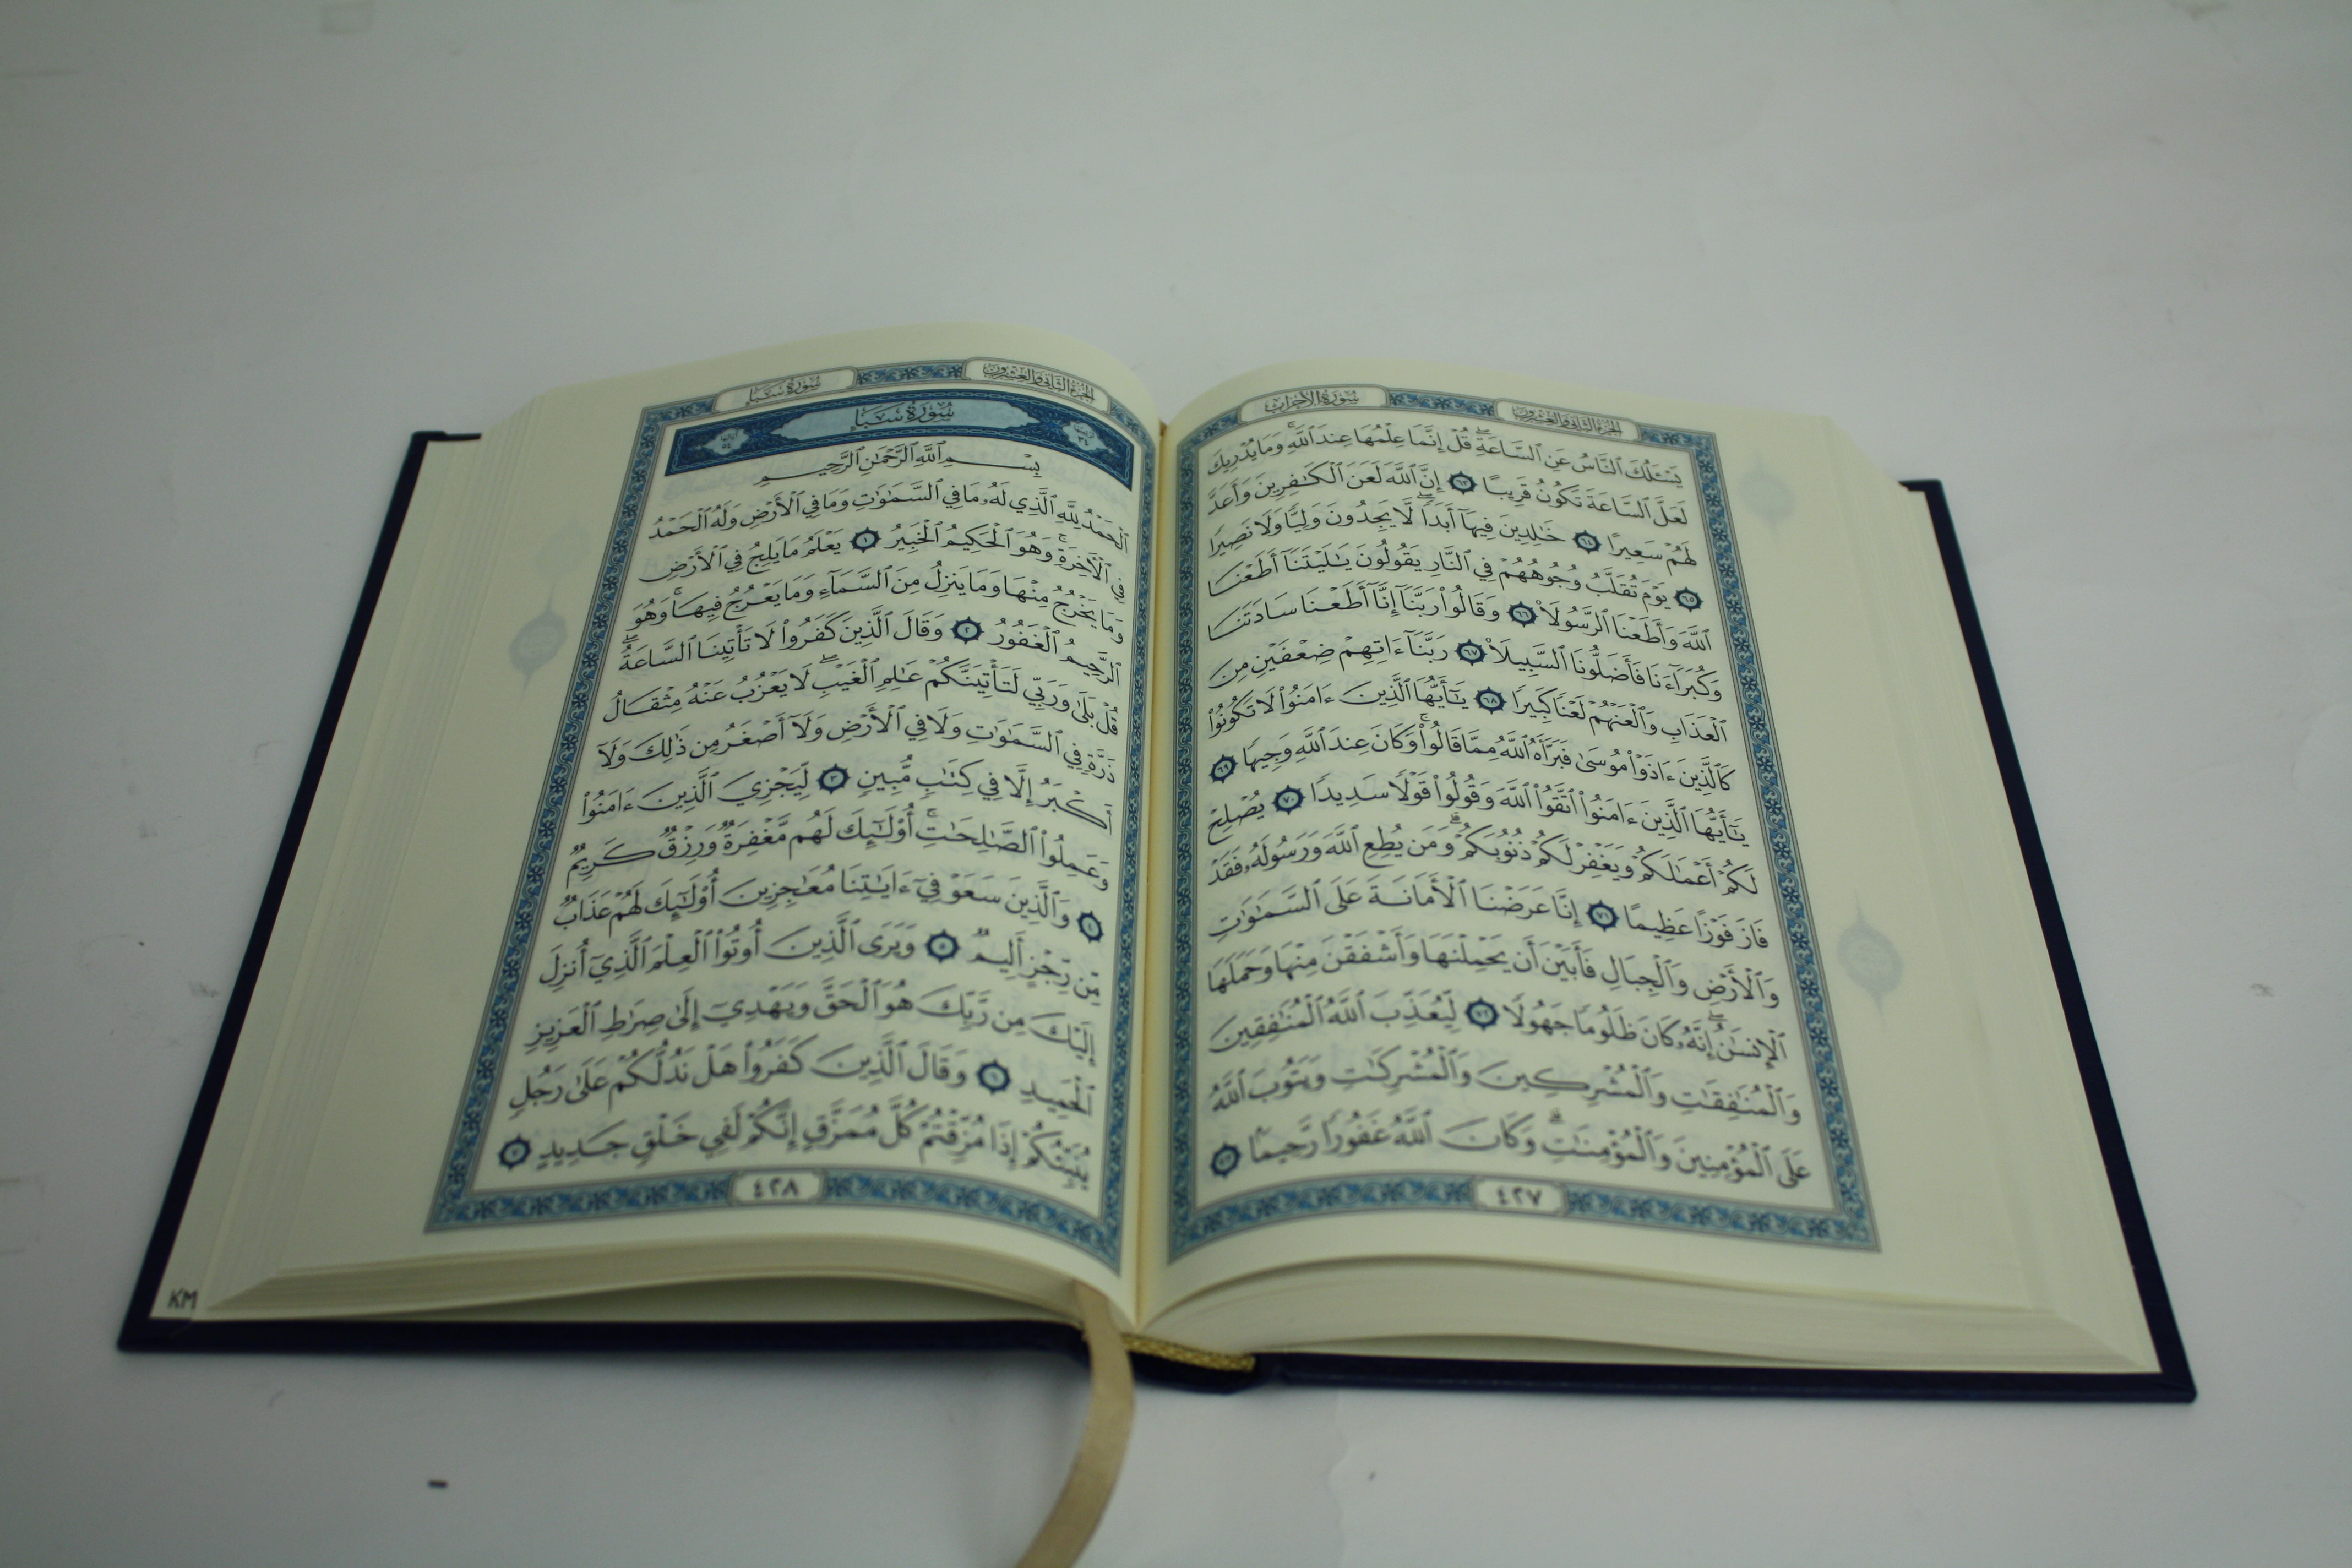 الجزء الثاني والعشرون
سورة الأحزاب
يَسْـَٔلُكَ ٱلنَّاسُ عَنِ ٱلسَّاعَةِۖ قُلْ إِنَّمَا عِلْمُهَا عِندَ ٱللَّهِۚ وَمَا يُدْرِيكَ
لَعَلَّ ٱلسَّاعَةَ تَكُونُ قَرِيبًا ٦٣ إِنَّ ٱللَّهَ لَعَنَ ٱلْكَٰفِرِينَ وَأَعَدَّ
لَهُمْ سَعِيرًا ٦٤ خَٰلِدِينَ فِيهَآ أَبَدًاۖ لَّا يَجِدُونَ وَلِيًّا وَلَا نَصِيرًا
٦٥ يَوْمَ تُقَلَّبُ وُجُوهُهُمْ فِي ٱلنَّارِ يَقُولُونَ يَٰلَيْتَنَآ أَطَعْنَا
ٱللَّهَ وَأَطَعْنَا ٱلرَّسُولَا۠ ٦٦ وَقَالُوا۟ رَبَّنَآ إِنَّآ أَطَعْنَا سَادَتَنَا
وَكُبَرَآءَنَا فَأَضَلُّونَا ٱلسَّبِيلَا۠ ٦٧ رَبَّنَآ ءَاتِهِمْ ضِعْفَيْنِ مِنَ
ٱلْعَذَابِ وَٱلْعَنْهُمْ لَعْنًا كَبِيرًا ٦٨ يَٰٓأَيُّهَا ٱلَّذِينَ ءَامَنُوا۟ لَا تَكُونُوا۟
كَٱلَّذِينَ ءَاذَوْا۟ مُوسَىٰ فَبَرَّأَهُ ٱللَّهُ مِمَّا قَالُوا۟ۚ وَكَانَ عِندَ ٱللَّهِ وَجِيهًا ٦٩
يَٰٓأَيُّهَا ٱلَّذِينَ ءَامَنُوا۟ ٱتَّقُوا۟ ٱللَّهَ وَقُولُوا۟ قَوْلًا سَدِيدًا ٧٠ يُصْلِحْ
لَكُمْ أَعْمَٰلَكُمْ وَيَغْفِرْ لَكُمْ ذُنُوبَكُمْۗ وَمَن يُطِعِ ٱللَّهَ وَرَسُولَهُۥ فَقَدْ
فَازَ فَوْزًا عَظِيمًا ٧١ إِنَّا عَرَضْنَا ٱلْأَمَانَةَ عَلَى ٱلسَّمَٰوَٰتِ
وَٱلْأَرْضِ وَٱلْجِبَالِ فَأَبَيْنَ أَن يَحْمِلْنَهَا وَأَشْفَقْنَ مِنْهَا وَحَمَلَهَا
ٱلْإِنسَٰنُۖ إِنَّهُۥ كَانَ ظَلُومًا جَهُولًا ٧٢ لِّيُعَذِّبَ ٱللَّهُ ٱلْمُنَٰفِقِينَ
وَٱلْمُنَٰفِقَٰتِ وَٱلْمُشْرِكِينَ وَٱلْمُشْرِكَٰتِ وَيَتُوبَ ٱللَّهُ
عَلَى ٱلْمُؤْمِنِينَ وَٱلْمُؤْمِنَٰتِۗ وَكَانَ ٱللَّهُ غَفُورًا رَّحِيمًا ٧٣
٤٢٧
الجزء الثاني والعشرون
سورة سبإ
سورة سبإ
بِسْمِ ٱللَّهِ ٱلرَّحْمَٰنِ ٱلرَّحِيمِ
ٱلْحَمْدُ لِلَّهِ ٱلَّذِي لَهُۥ مَا فِي ٱلسَّمَٰوَٰتِ وَمَا فِي ٱلْأَرْضِ وَلَهُ ٱلْحَمْدُ
فِي ٱلْأٓخِرَةِۚ وَهُوَ ٱلْحَكِيمُ ٱلْخَبِيرُ ١ يَعْلَمُ مَا يَلِجُ فِي ٱلْأَرْضِ
وَمَا يَخْرُجُ مِنْهَا وَمَا يَنزِلُ مِنَ ٱلسَّمَآءِ وَمَا يَعْرُجُ فِيهَاۚ وَهُوَ
ٱلرَّحِيمُ ٱلْغَفُورُ ٢ وَقَالَ ٱلَّذِينَ كَفَرُوا۟ لَا تَأْتِينَا ٱلسَّاعَةُۖ
قُلْ بَلَىٰ وَرَبِّي لَتَأْتِيَنَّكُمْ عَٰلِمِ ٱلْغَيْبِۖ لَا يَعْزُبُ عَنْهُ مِثْقَالُ
ذَرَّةٍ فِي ٱلسَّمَٰوَٰتِ وَلَا فِي ٱلْأَرْضِ وَلَآ أَصْغَرُ مِن ذَٰلِكَ وَلَآ
أَكْبَرُ إِلَّا فِي كِتَٰبٍ مُّبِينٍ ٣ لِّيَجْزِيَ ٱلَّذِينَ ءَامَنُوا۟
وَعَمِلُوا۟ ٱلصَّٰلِحَٰتِۚ أُو۟لَٰٓئِكَ لَهُم مَّغْفِرَةٌ وَرِزْقٌ كَرِيمٌ
٤ وَٱلَّذِينَ سَعَوْ فِيٓ ءَايَٰتِنَا مُعَٰجِزِينَ أُو۟لَٰٓئِكَ لَهُمْ عَذَابٌ
مِّن رِّجْزٍ أَلِيمٌ ٥ وَيَرَى ٱلَّذِينَ أُوتُوا۟ ٱلْعِلْمَ ٱلَّذِيٓ أُنزِلَ
إِلَيْكَ مِن رَّبِّكَ هُوَ ٱلْحَقَّ وَيَهْدِيٓ إِلَىٰ صِرَٰطِ ٱلْعَزِيزِ
ٱلْحَمِيدِ ٦ وَقَالَ ٱلَّذِينَ كَفَرُوا۟ هَلْ نَدُلُّكُمْ عَلَىٰ رَجُلٍ
يُنَبِّئُكُمْ إِذَا مُزِّقْتُمْ كُلَّ مُمَزَّقٍ إِنَّكُمْ لَفِي خَلْقٍ جَدِيدٍ ٧
٤٢٨
KM